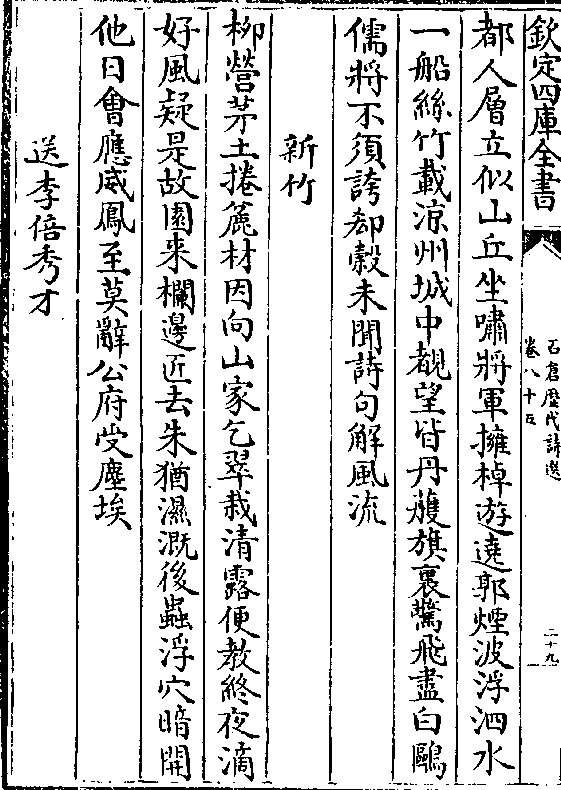 欽定四庫全書
石倉歷代詩選
卷八十五
二十九
都人層立似山丘坐嘯將軍擁棹遊遶郭煙波浮泗水
一船絲竹載涼州城中覩望皆丹雘旗裏驚飛盡白鷗
儒將不須誇郤縠未聞詩句解風流
新竹
栁營茅土捲麄材因向山家乞翠栽清露便教終夜滴
好風疑是故園来欄邊近去朱猶濕溉後蟲浮穴暗開
他日㑹應威鳳至莫辭公府受塵埃
送李倍秀才